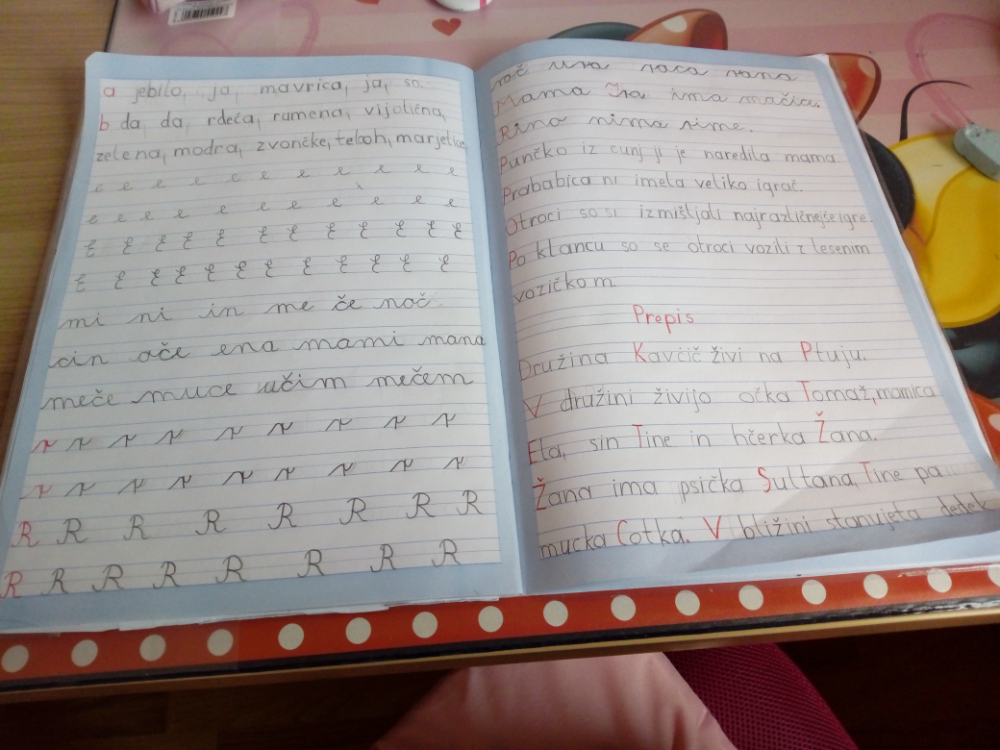 a jebilo, ja, mavrica, ja, so.
b da, da, rdeča, rumena, vijolična,
zelena, modra, zvončke, teloh, marjetice
e e e e e e e e e e e
e e e e e e e e e e e
E E E E E E E E E E E E
E E E E E E E E E E E E
mi ni in me če noč
cin oče ena mami mana
meče muce učim mečem
r r r r r r r r r
r r r r r r r r r
R R R R R R R R
R R R R R R R R
roč ura raca rana
Mama Ira ima mačico.
Rina nima rime.
Punčko iz cunj ji je naredila mama.
Prababica ni imela veliko igrač.
Otroci so si izmišljali najrazličnejše igre.
Po klancu so se otroci vozili z lesenim
vozičkom.
Prepis
Družina Kavčič živi na Ptuju.
V družini živijo očka Tomaž, mamica
Eta, sin Tine in hčerka Žana.
Žana ima psička Sultana, Tine pa
mucka Cotka. V bližini stanujeta dedek